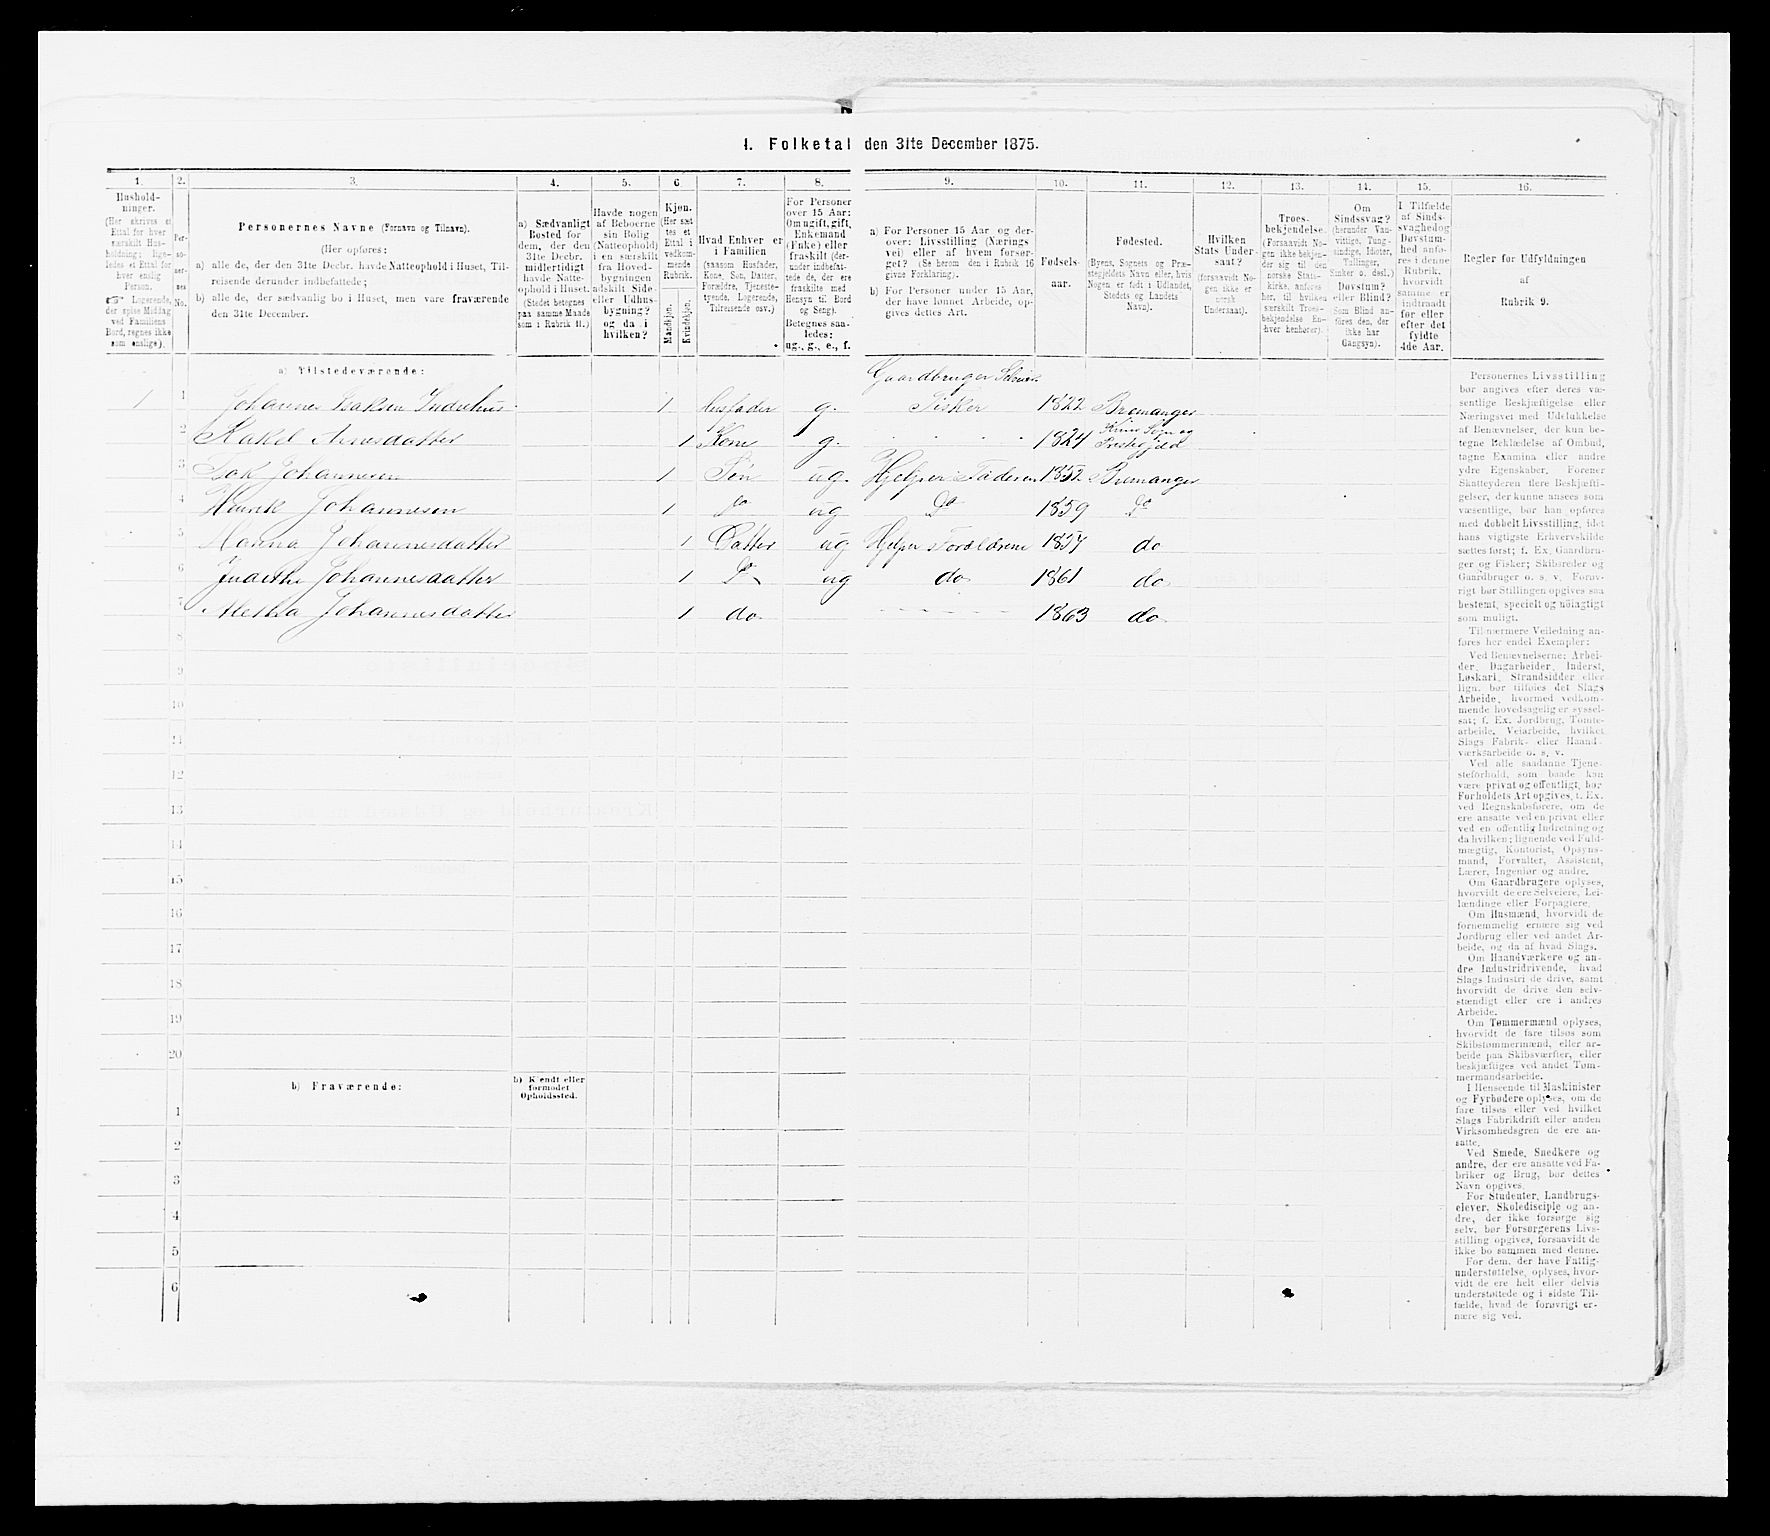 1. Folketal den 31te December 1875.
1.
2.
3.
4.
5.
6.
7.
8.
9.
10.
11.
12.
13.
14.
15.
16.
Hushold-
ninger.
(Her skrives et
Ettal for hver
særskilt Hus-
holdning; lige-
ledes et Ettal for
hver enslig
Person.
Logerende,
der spise Middag
ved Familiens
Bord, regnes ikke
som enslige).
Per-
so-
ner-
nes
No.
Personernes Navne (Fornavn og Tilnavn).
(Her opføres:
a) alle de, der den 31te Decbr. havde Natteophold i Huset, Til-
reisende derunder indbefattede;
b) alle de, der sædvanlig bo i Huset, men vare fraværende
den 31te December.
a) Sædvanligt
Bosted for
dem, der den
31te Decbr.
midlertidigt
havde Natte-
ophold i Huset.
(Stedet betegnes
paa samme Maade
som i Rubrik 11.)
Havde nogen
af Beboerne
sin Bolig
(Natteophold)
i en særskilt
fra Hoved-
bygningen
adskilt Side-
eller Udhus-
bygning?
og da i
hvilken?
Kjøn.
(Her sæt-
tes et
Ettal i
vedkom-
mende
Rubrik.
Mandkjøn.
Kvindekjøn.
Hvad Enhver er
i Familien
(saasom Husfader,
Kone, Søn, Datter,
Forældre, Tjeneste-
tyende, Logerende,
Tilreisende osv.)
For Personer
over 15 Aar:
Om ugift, gift,
Enkemand
(Enke) eller
fraskilt (der-
under indbefat-
tede de, der ere
fraskilte med
Hensyn til Bord
og Seng).
Betegnes saa-
ledes:
ug., g., e., f.
a) For Personer 15 Aar og der-
over: Livsstilling (Nærings-
vei) eller af hvem forsør-
get? (Se herom den i Rubrik 16
givne Forklaring).
b) For Personer under 15 Aar,
der have lønnet Arbeide, op-
gives dettes Art.
Fødsels-
aar.
Fødested.
(Byens, Sognets og Præ-
stegjeldets Navn eller, hvis
Nogen er født i Udlandet,
Stedets og Landets
Navn).
Hvilken
Stats Under-
saat?
(forsaavidt No-
gen ikke er
norsk
Undersaat).
Troes-
bekjendelse.
(Forsaavidt No-
gen ikke bekjen-
der sig til den
norske Stats-
kirke, anføres
her, til hvilken
særskilt Troes-
bekjendelse En-
hver henhører).
Om
Sindssvag?
(herunder Van-
vittige, Tung-
sindige, Idioter,
Tullinger,
Sinker o. desl.)
Døvstum?
eller Blind?
(Som Blind an-
føres den, der
ikke har
Gangsyn).
I Tilfælde
af Sinds-
svaghed og
Døvstum-
hed anfø-
res i denne
Rubrik,
hvorvidt
samme er
indtraadt
før eller
efter det
fyldte
4de Aar.
Regler for Udfyldningen
af
Rubrik 9.
a) Tilstedeværende:
1 1 Johannes Isaksen Inderhus 1 Husfader g. Gaardbruger Selveier Fisker 1822 Bremanger
2 Rakel Arnesdatter 1 Kone g. 1824 Kinn Sogn og Prestegjeld
3 Isak Johannesen 1 Søn ug. Hjelper Faderen 1852 Bremanger
4 Henrik Johannesen 1 Do ug Do 1859 Do
5 Marina Johannesdatter 1 Datter ug Hjelper Forældrene 1857 do
6 Judithe Johannesdatter 1 Do ug do 1861 do
7 Metha Johannesdatter 1 do 1863 do
8
9
10
11
12
13
14
15
16
17
18
19
20
b) Fraværende:
b) Kjendt eller
formodet
Opholdssted.
1
2
3
4
5
6
Personernes Livsstilling
bør angives efter deres væ-
sentlige Beskjæftigelse eller
Næringsvei med Udelukkelse
af Benævnelser, der kun be-
tegne Beklædelse af Ombud,
tagne Examina eller andre
ydre Egenskaber. Forener
Skatteyderen flere Beskjæfti-
gelser, der kunne ansees som
væsentlige, bør han opføres
med dobbelt Livsstilling, idet
hans vigtigste Erhvervskilde
sættes først; f. Ex. Gaardbru-
ger og Fisker; Skibsreder og
Gaardbruger o. s. v. Forøv-
rigt bør Stillingen opgives saa
bestemt, specielt og nøiagtigt
som muligt.
Til nærmere Veiledning an-
føres her endel Exempler:
Ved Benævnelserne: Arbei-
der, Dagarbeider, Inderst,
Løskarl, Strandsidder eller
lign. bør tilføies det Slags
Arbeide, hvormed vedkom-
mende hovedsagelig er syssel-
sat; f. Ex. Jordbrug, Tomte-
arbeide, Veiarbeide, hvilket
Slags Fabrik- eller Haand-
værksarbeide o. s. v.
Ved alle saadanne Tjene-
steforhold, som baade kan
være privat og offentligt, bør
Forholdets Art opgives, f. Ex.
ved Regnskabsførere, om de
ere ansatte ved en privat eller
ved en offentlig Indretning og
da hvilken; lignende ved Fuld-
mægtig, Kontorist, Opsyns-
mand, Forvalter, Assistent,
Lærer, Ingeniør og andre.
Om Gaardbrugere oplyses,
hvorvidt de ere Selveiere, Lei-
lændinge eller Forpagtere.
Om Husmænd, hvorvidt de
fornemmelig ernære sig ved
Jordbrug eller ved andet Ar-
beide, og da af hvad Slags.
Om Haandværkere og an-
dre Industridrivende, hvad
Slags Industri de drive, samt
hvorvidt de drive den selv-
stændigt eller ere i andres
Arbeide.
Om Tømmermænd oplyses,
hvorvidt de fare tilsøs som
Skibstømmermænd, eller ar-
beide paa Skibsværfter, eller
beskjæftiges ved andet Tøm-
mermandsarbeide.
I Henseende til Maskinister
og Fyrbødere oplyses, om de
fare tilsøs eller ved hvilket
Slags Fabrikdrift eller anden
Virksomhedsgren de ere an-
satte.
Ved Smede, Snedkere og
andre, der ere ansatte ved Fa-
briker og Brug, bør dettes
Navn opgives.
For Studenter, Landbrugs-
elever, Skoledisciple og an-
dre, der ikke forsørge sig
selv, bør Forsørgerens Livs-
stilling opgives, forsaavidt de
ikke bo sammen med denne.
For dem, der have Fattig-
understøttelse, oplyses, hvor-
vidt de ere helt eller delvis
understøttede og i sidste Til-
fælde, hvad de forøvrigt er-
nære sig ved.